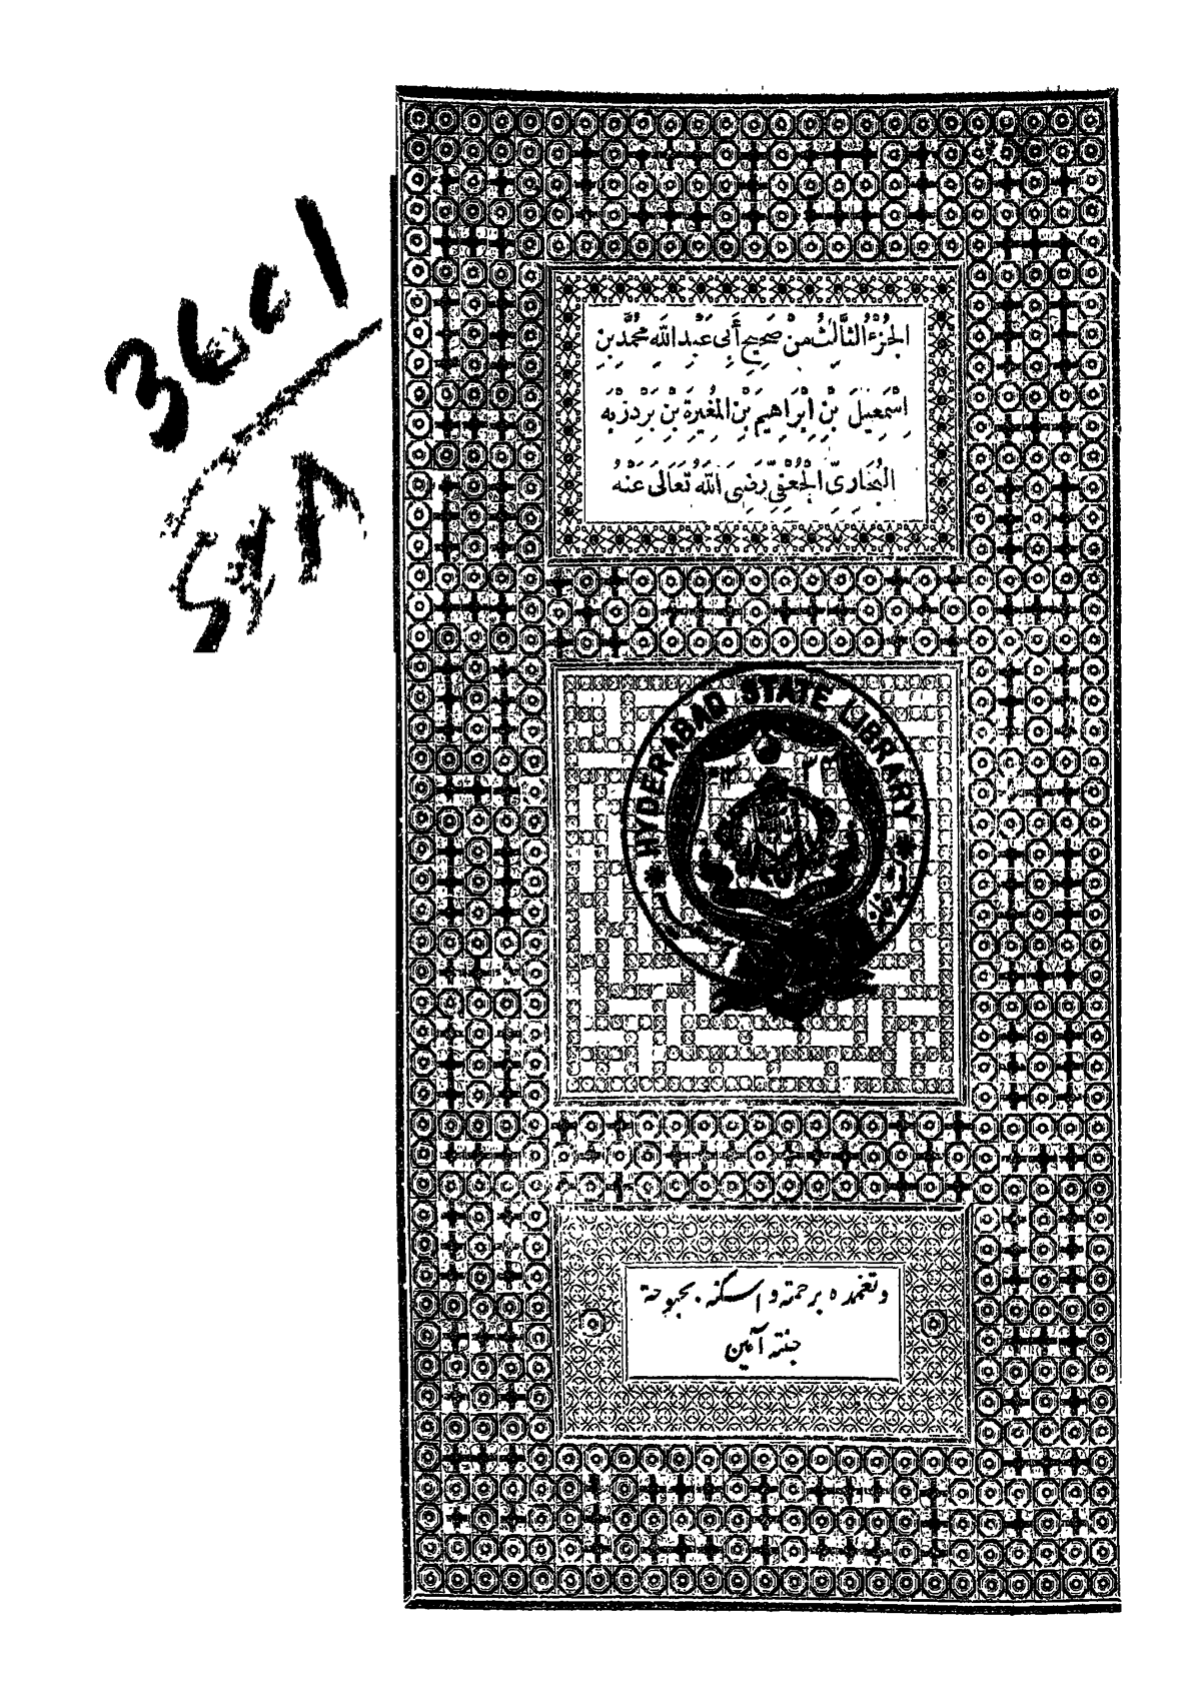 الجُزْءُ الثَّالِثُ مِنْ صَحِيحِ أَبِي عَبْدِ اللهِ مُحَمَّدِ بْنِ
إِسْمَعِيلَ بْنِ إِبْرَاهِيمَ بْنِ المُغِيرَةِ بْنِ بَرْدِزْبَه
البُخَارِيّ الجُعْفِيّ رَضِيَ اللهُ تَعَالَى عَنْهُ
HYDERABAD STATE LIBRARY
وتغمده برحمته واسكنه بحبوحة
جنته آمين